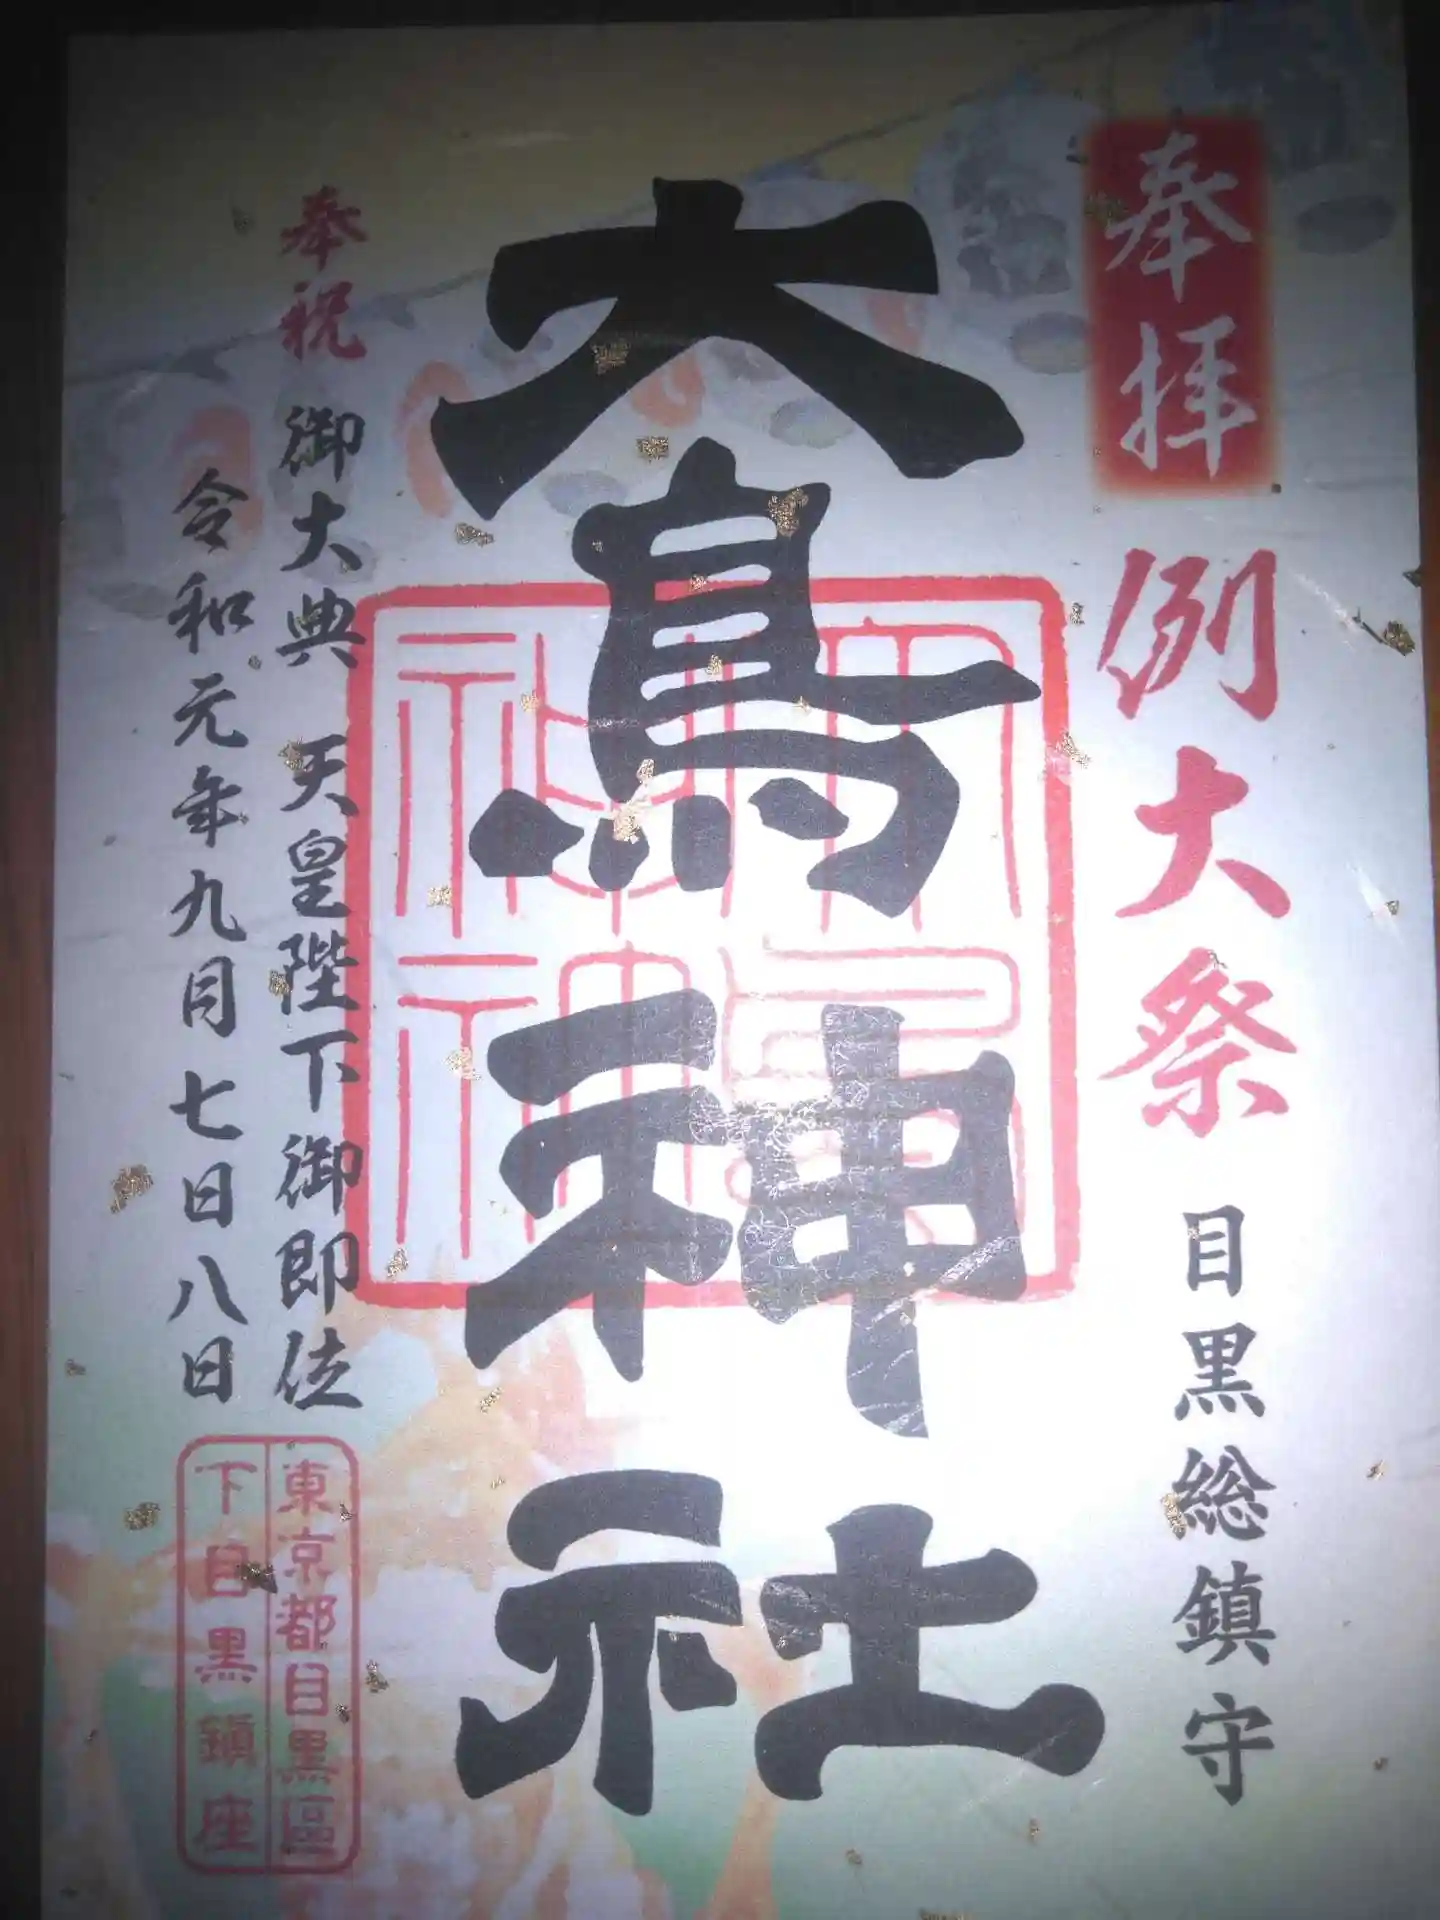 奉拝
例大祭
目黒総鎮守
大鳥神社
奉祝 御大典 天皇陛下御即位
令和元年九月七日八日
東京都目黒區
下目黒鎮座